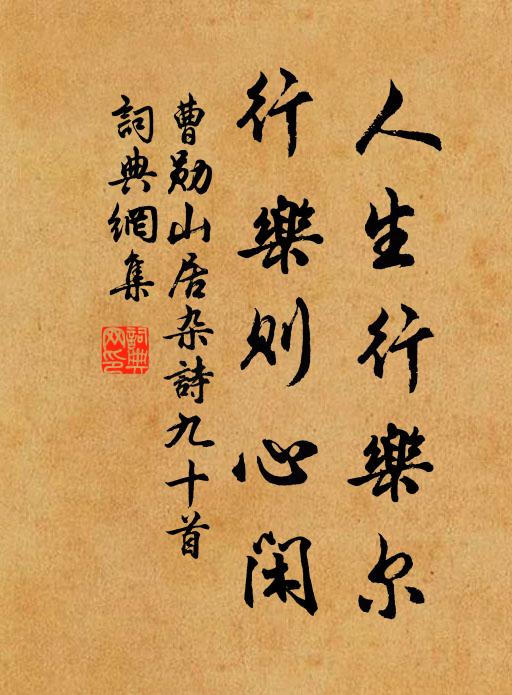 人生行樂尔
行樂则心闲
曹勛山居杂詩九十首
詞典網集
詞典
网印